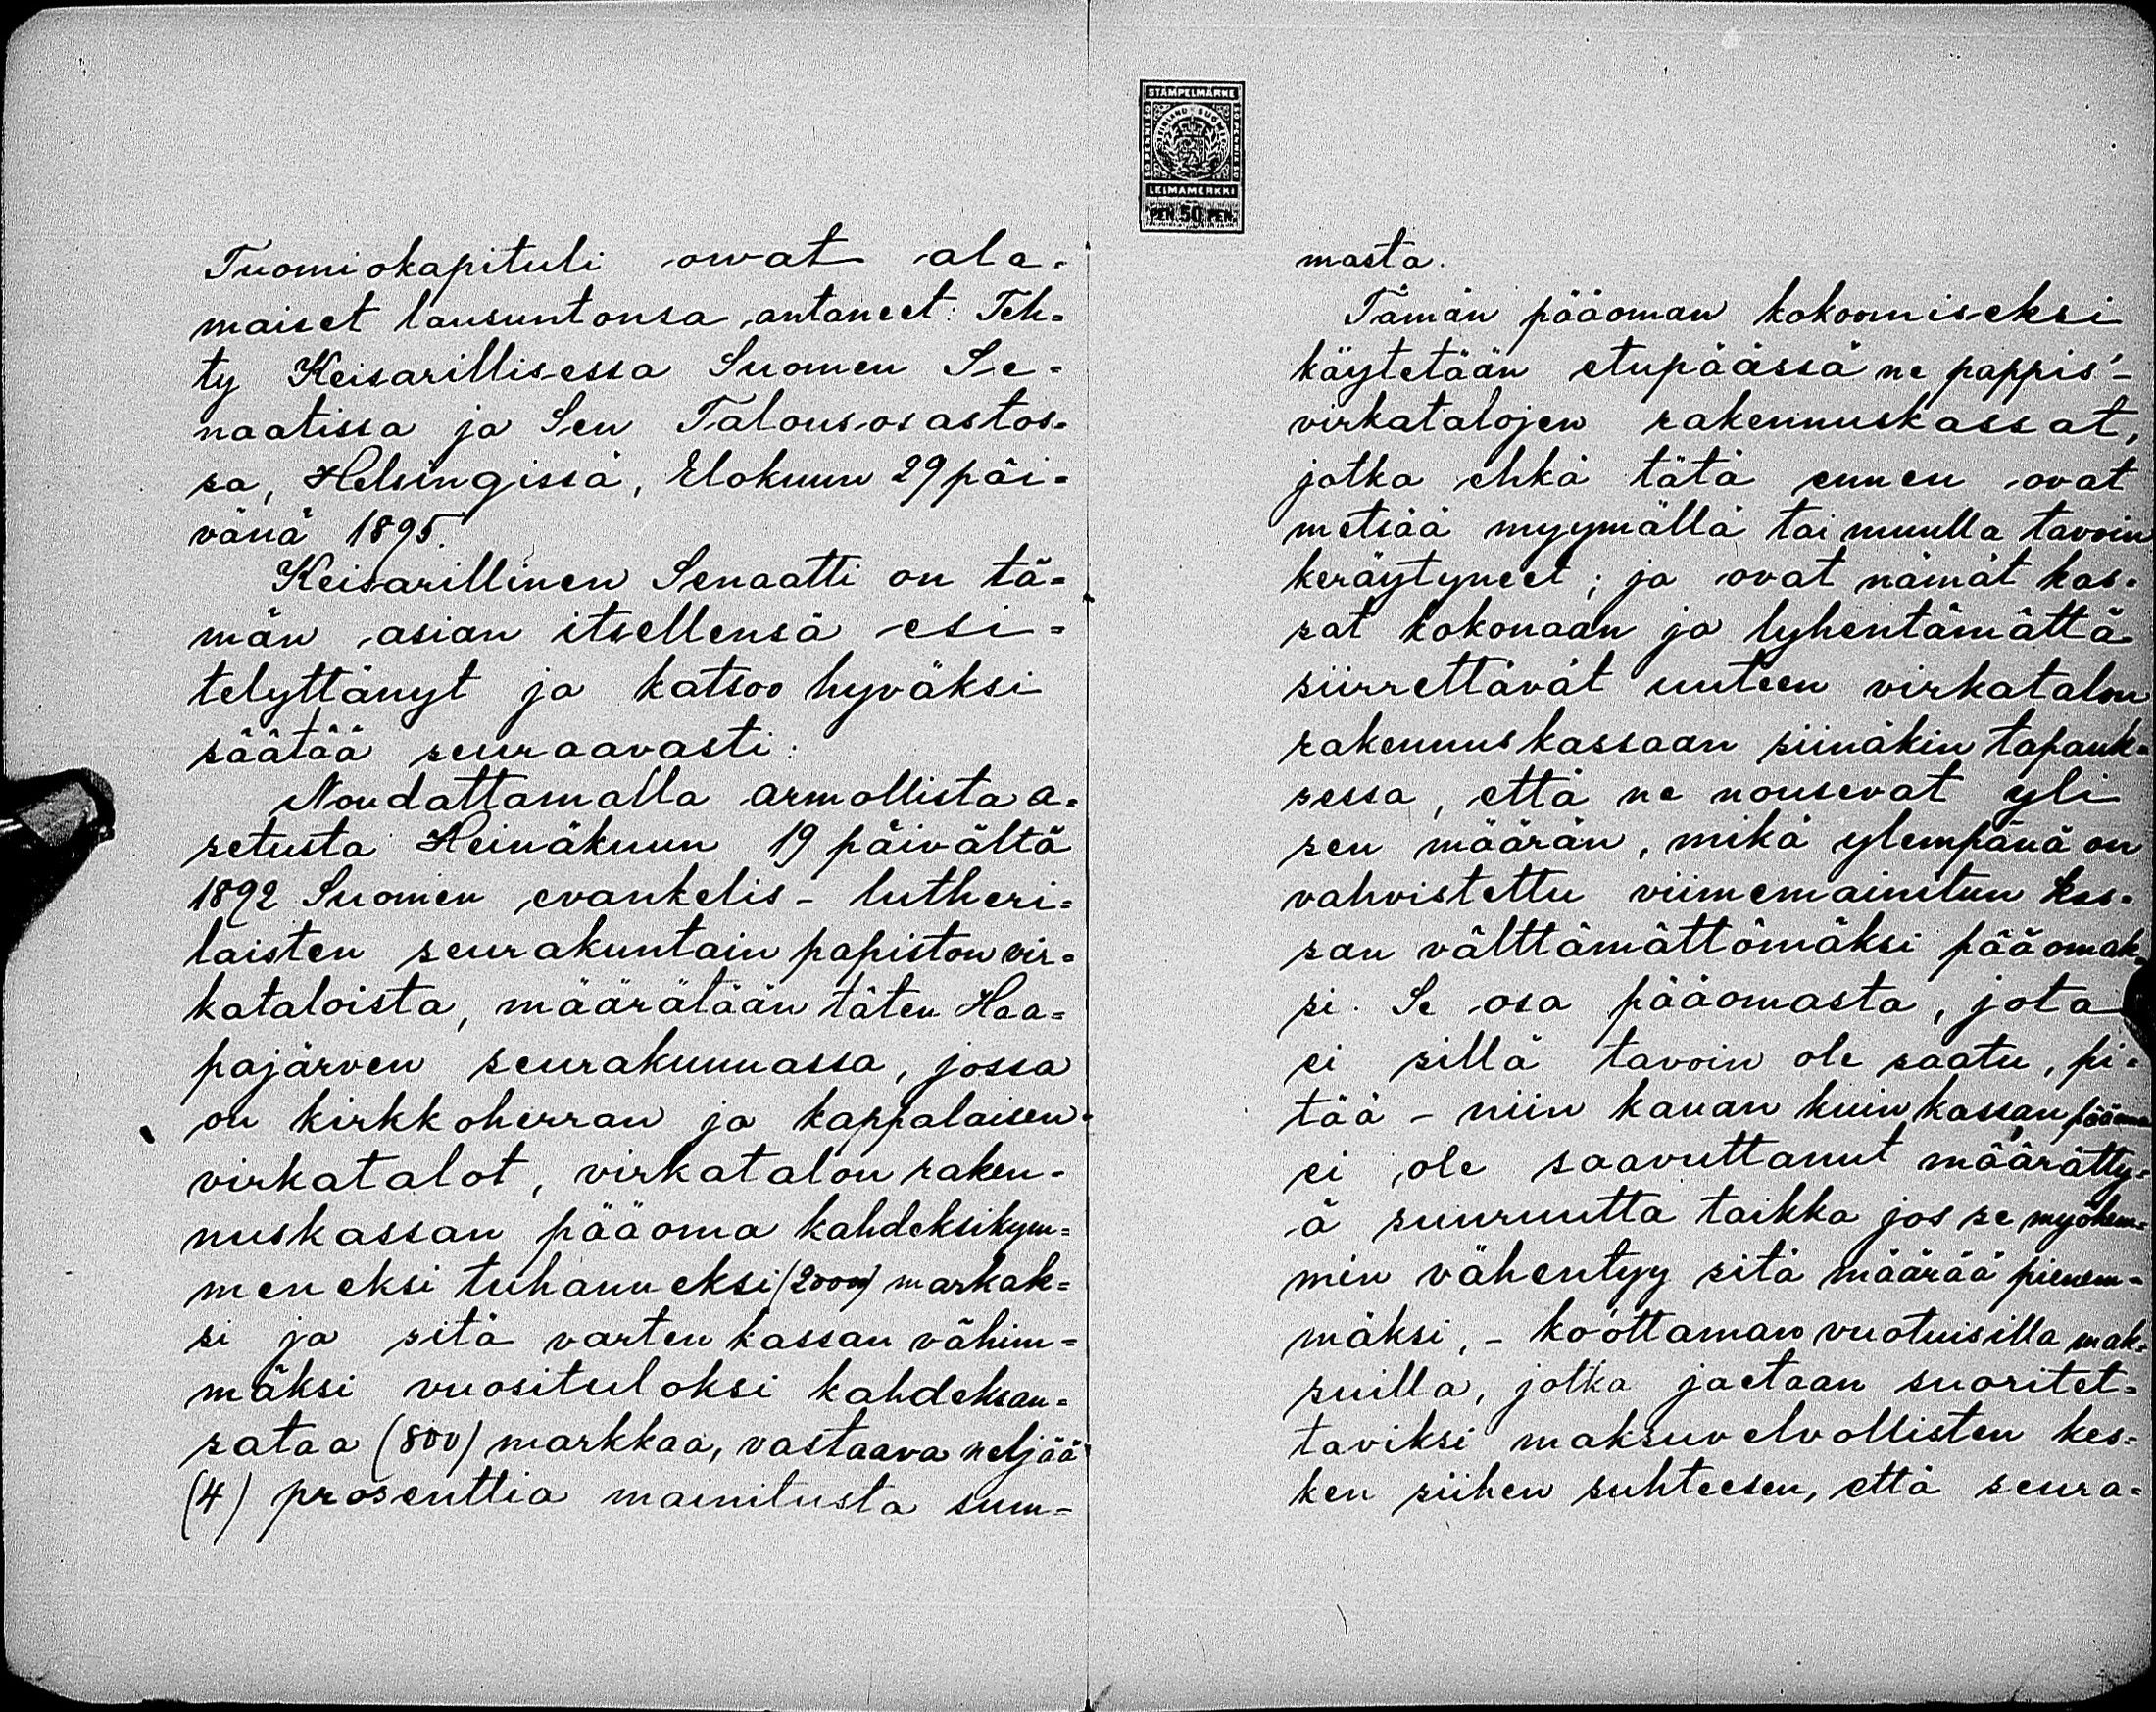 Tuomiokapituli ovat ala=
maiset lausuntonsa antaneet: Teh=
ty Keisarillisessa Suomen Se=
naatissa ja Sen Talousosastos=
sa, Helsingissä, Elokuun 29 päi=
vänä 1895.
Keisarillinen Senaatti on tä=
män asian itsellensä esi=
telyttänyt ja katsoo hyväksi
säätää seuraavasti:
Noudattamalla armollista a=
setusta Heinäkuun 19 päivältä
1892 Suomen evankelis-lutheri=
laisten seurakuntain papiston vir=
kataloista, määrätään täten Haa=
pajärven seurakunnassa, jossa
on kirkkoherran ja kappalaisen
virkatalot, virkatalon raken=
nuskassan pääoma kahdeksikym=
meneksi tuhanneksi (20000) markak=
si ja sitä varten kassan vähim=
mäksi vuosituloksi kahdeksan=
sataa (800) markkaa, vastaava neljää
(4) prosenttia mainitusta sum=
STÄMPELMÄRKE
FINLAND SUOMI
50 PENNIS 50
LEIMAMERKKI
PEN. 50 PEN.
masta.
Tämän pääoman kokoomiseksi
käytetään etupäässä ne pappis-
virkatalojen rakennuskassat,
jotka ehkä tätä ennen ovat
metsää myymällä tai muulla tavoin
keräytyneet; ja ovat nämät kas=
sat kokonaan ja lyhentämättä
siirrettävät uuteen virkatalon
rakennuskassaan siinäkin tapauk=
sessa, että ne nousevat yli
sen määrän, mikä ylempänä on
vahvistettu viimemainitun kas=
san välttämättömäksi pääomak=
si. Se osa pääomasta, jota
ei sillä tavoin ole saatu, pi=
tää - niin kauan kuin kassan pääoma
ei ole saavuttanut määrätty=
ä suuruutta taikka jos se myöhem=
min vähentyy sitä määrää pienem=
mäksi, - koottaman vuotuisilla mak=
suilla, jotka jaetaan suoritet=
taviksi maksuvelvollisten kes=
ken siihen suhteesen, että seura=